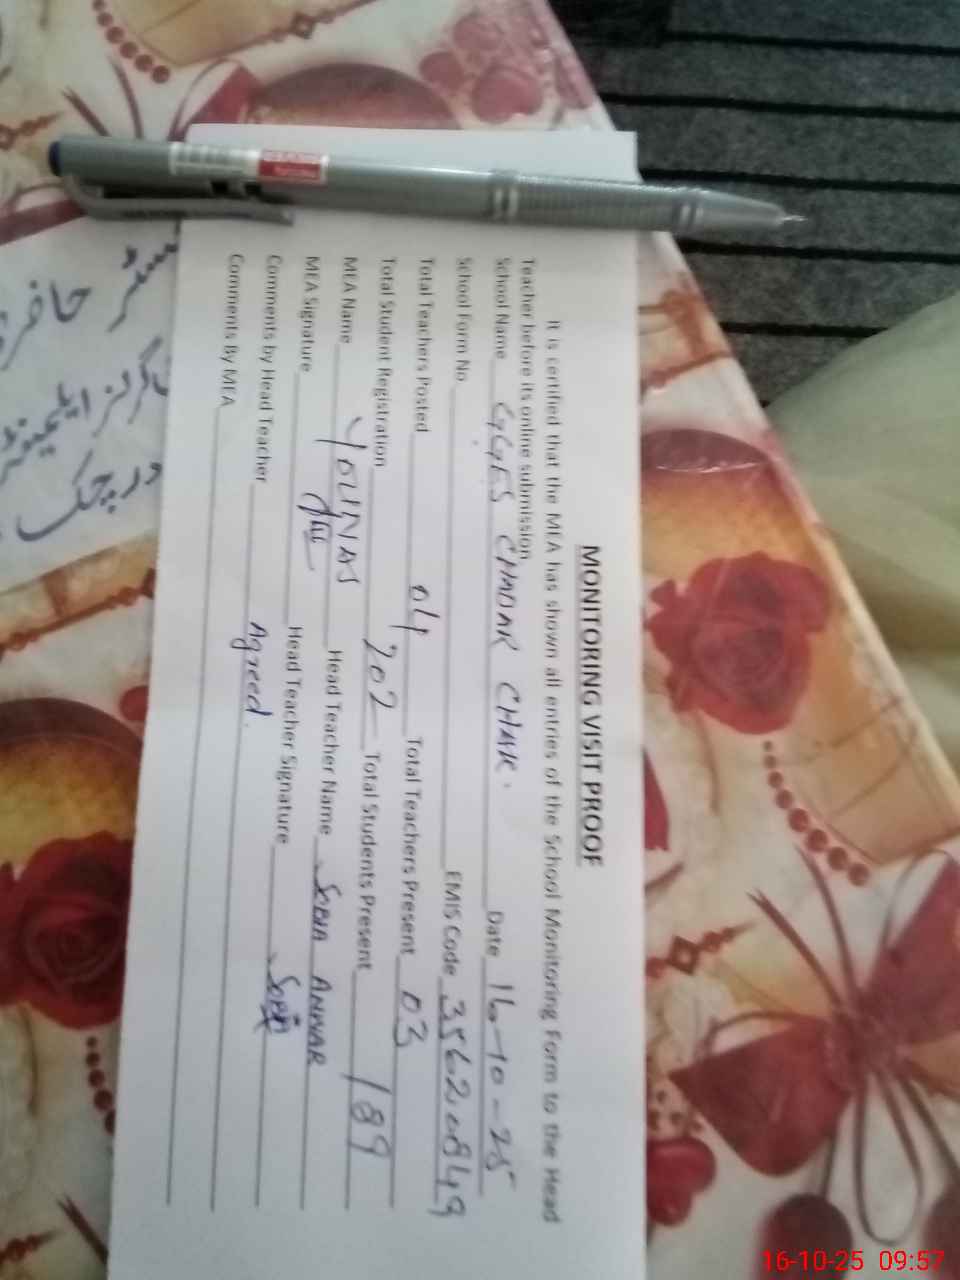 MONITORING VISIT PROOF
It is certified that the MEA has shown all entries of the School Monitoring Form to the Head
Teacher before its online submission
School Name GGES CHADAR CHAK. Date 16-10-25
School Form No EMIS Code 35620849
Total Teachers Posted 04 Total Teachers Present 03
Total Student Registration 202 Total Students Present 189
MEA Name YOUNAS Head Teacher Name SOBIA ANWAR
MEA Signature Head Teacher Signature
Comments by Head Teacher Agreed.
Comments By MEA
حاضری
گرلز ایلیمنٹری
چک
16-10-25 09:57